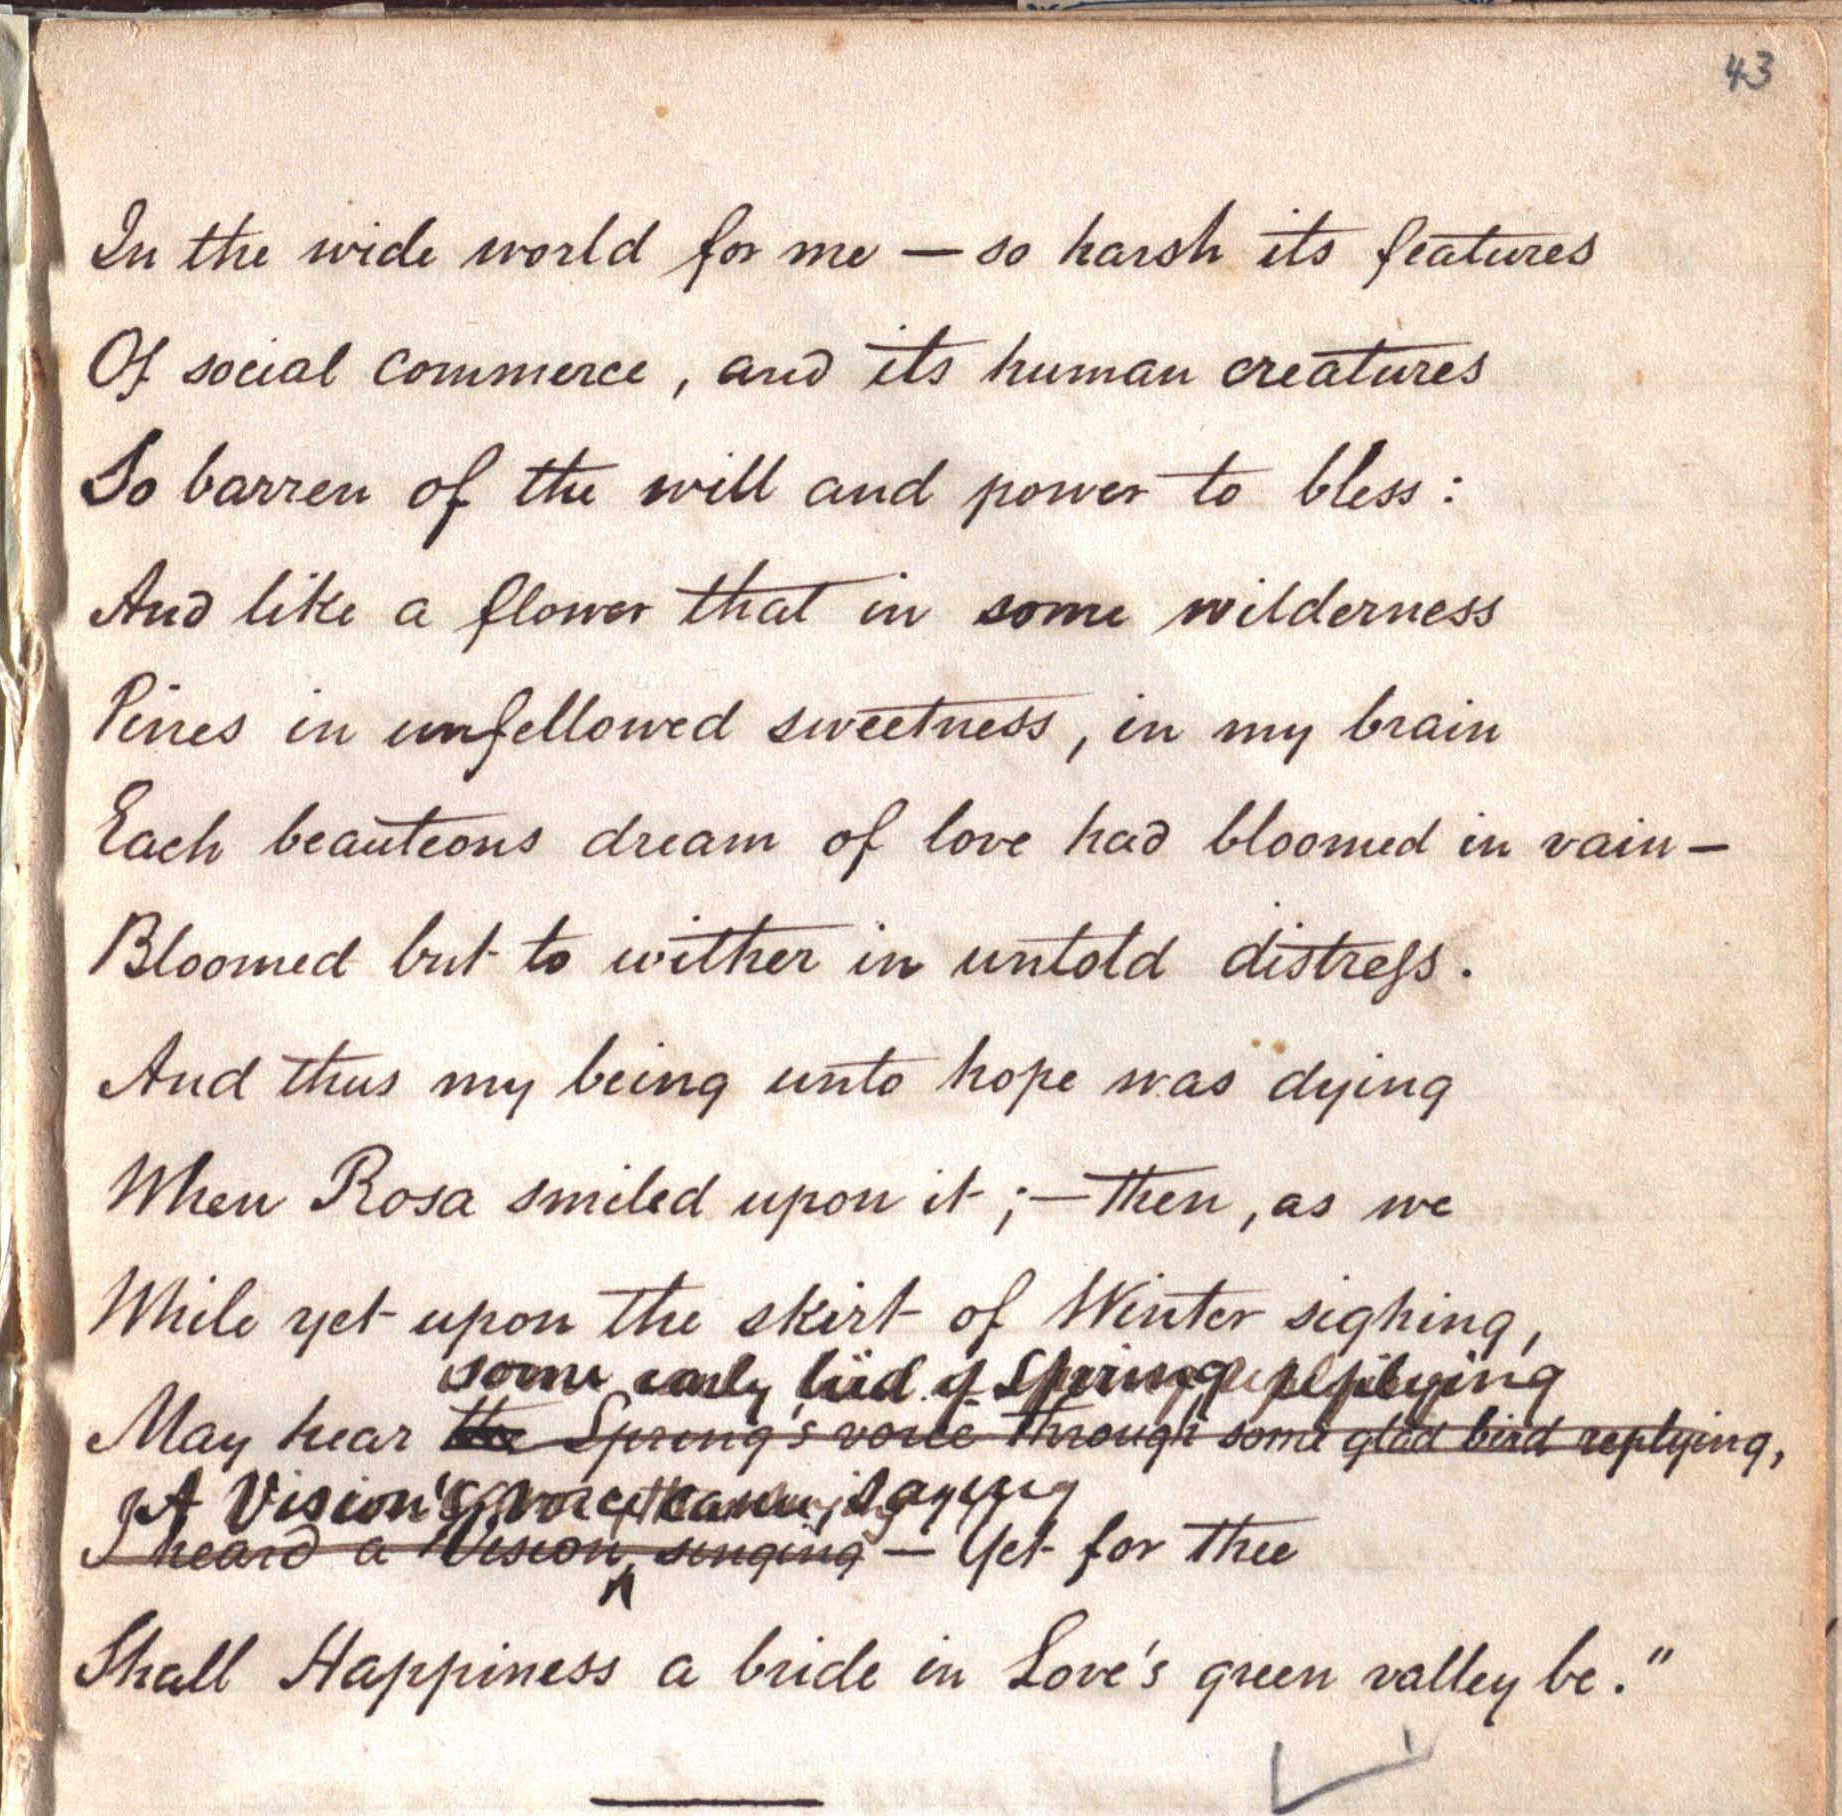 43
In the wide world for me — so harsh its features
Of social commerce, and its human creatures
So barren of the will and power to bless:
And like a flower that in some wilderness
Pines in unfellowed sweetness, in my brain
Each beauteous dream of love had bloomed in vain —
Bloomed but to wither in untold distress.
And thus my being unto hope was dying
When Rosa smiled upon it; — then, as we
While yet upon the skirt of Winter sighing,
some early bird of Spring replying
May hear the Spring's voice through some glad bird replying,
A Vision's voice came, saying
I heard a Vision singing — Yet for thee
Shall Happiness a bride in Love's green valley be."